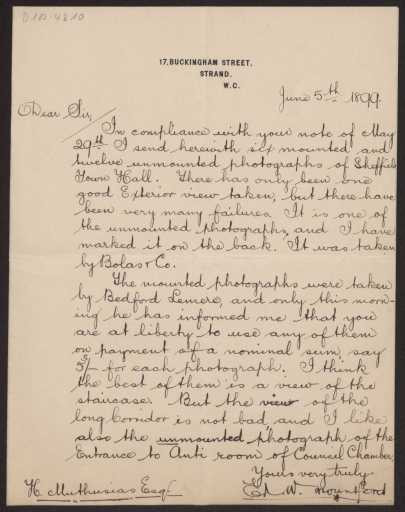 D 102-4810
17, BUCKINGHAM STREET,
STRAND.
W.C.
June 5th 1899.
Dear Sir,
In compliance with your note of May
29th I send herewith six mounted and
twelve unmounted photographs of Sheffield
Town Hall. There has only been one
good Exterior view taken, but there have
been very many failures. It is one of
the unmounted photographs, and I have
marked it on the back. It was taken
by Bolas & Co.
The mounted photographs were taken
by Bedford Lemere, and only this morn-
ing he has informed me that you
are at liberty to use any of them
on payment of a nominal sum, say
5/- for each photograph. I think
the best of them is a view of the
staircase. But the view of the
long Corridor is not bad, and I like
also the unmounted photograph of the
Entrance to Anti room of Council Chamber.
Yours very truly
H. Muthusias Esqr
Ed. W. Mountford